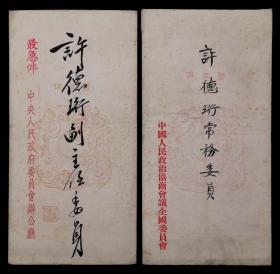 最急件
許德珩副主任委員
中央人民政府委員會辦公廳
許德珩常務委員
中國人民政治協商會議全國委員會